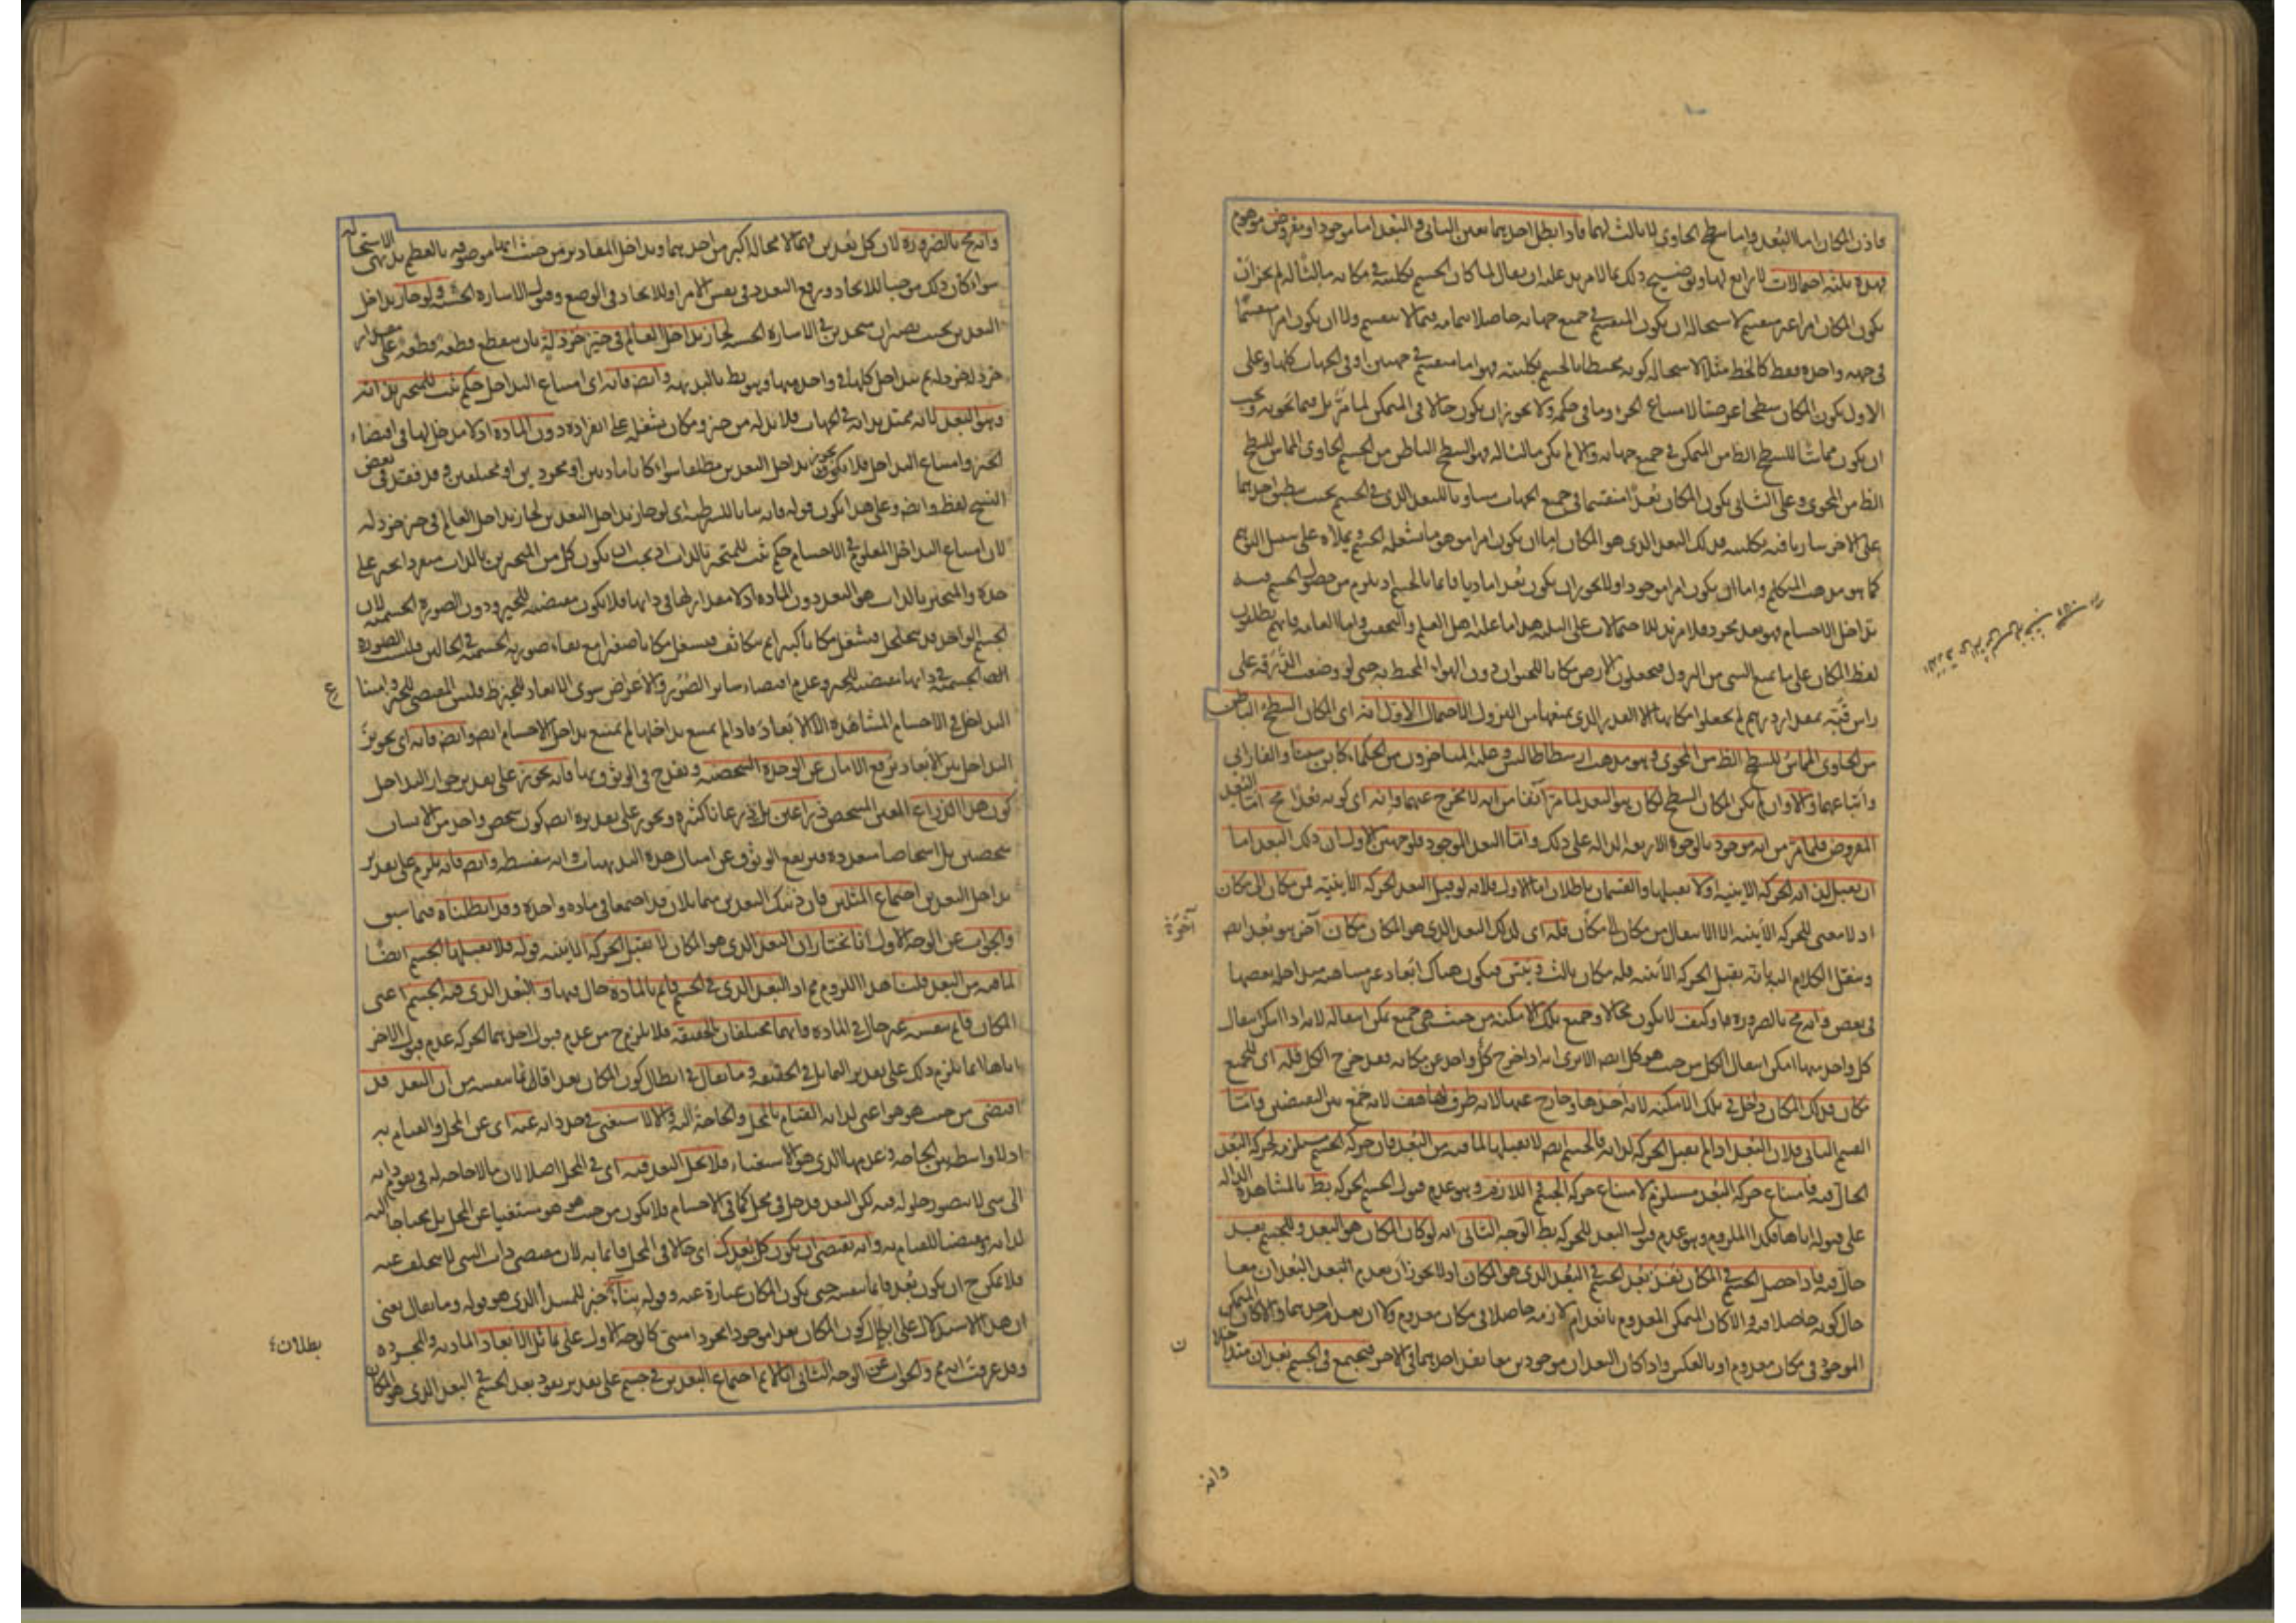 فاذن المكان اما البعد واما سطح الحاوى لا ثالث لهما فاذا بطل احدهما تعين الثانى والبعد اما موجود او مفروض موهوم
فهذه ثلثة احتمالات لا رابع لها وتوضيح ذلك بما لا مزيد عليه ان يقال لما كان الجسم بكليته فى مكانه مالئا له لم يجز ان
يكون المكان امرا غير منقسم لاستحالة ان يكون المنقسم فى جميع جهاته حاصلا بتمامه فيما لا ينقسم ولا ان يكون امرا منقسما
فى جهة واحدة فقط كالخط مثلا لاستحالة كونه محيطا بالجسم بكليته فهو اما منقسم فى جهتين او فى الجهات كلها وعلى
الاول يكون المكان سطحا عرضيا لامتناع الجزء وما فى حكمه ولا يجوز ان يكون حالا فى المتمكن لما مر بل فيما يحويه ويجب
ان يكون مماسا للسطح الظ من المتمكن فى جميع جهاته والا لم يكن مالئا له فهو السطح الباطن من الجسم الحاوى المماس للسطح
الظ من المحوى وعلى الثانى يكون المكان بعدا منقسما فى جميع الجهات مساويا للبعد الذى فى الجسم بحيث ينطبق احدهما
على الآخر ساريا فيه بكليته فذلك البعد الذى هو المكان اما ان يكون امرا موهوما يشغله الجسم ويملاه على سبيل التوهم
كما هو مذهب المتكلم واما ان يكون امرا موجودا ولا يجوز ان يكون بعدا ماديا قائما بالجسم اذ يلزم من حصول الجسم فيه
تداخل الاجسام فهو بعد مجرد فلا مزيد للاحتمالات على الثلثة هذا ما عليه اهل العلم والتحقيق واما العامة فانهم يطلقون
لفظ المكان على ما يمنع الشى من النزول فيجعلون الارض مكانا للحيوان دون الهواء المحيط به حتى لو وضعت الدرقة على
راس قبة بمقدار درهم لم يجعلوا مكانها الا القدر الذى يمنعها من النزول الاحتمال الاول انه اى المكان السطح الباطن
من الحاوى المماس للسطح الظ من المحوى وهو مذهب ارسطاطاليس وعليه المتاخرون من الحكماء كابن سينا والفارابى
واتباعهما والا وان لم يكن المكان السطح لكان هو البعد لما مر آنفا من انه لا يخرج عنهما وانه اى كونه بعدا مح اما البعد
المفروض فلما مر من انه موجود بالوجوه الاربعة الدالة على ذلك واما البعد الموجود فلوجهين الاول ان ذلك البعد اما
ان يقبل لذاته الحركة الاينية اولا يقبلها والقسمان باطلان اما الاول فلانه لو قبل البعد الحركة الاينية فمن مكان الى مكان
اذ لا معنى للحركة الاينية الا الانتقال من مكان الى مكان فله اى لذلك البعد الذى هو المكان مكان آخر هو بعد ايض
وينقل الكلام اليه بانه يقبل الحركة الاينية فله مكان ثالث ويتس فيكون هناك ابعاد غير متناهية متداخلة بعضها
فى بعض وانه مح بالضرورة وكيف لا يكون محالا وجميع تلك الامكنة من حيث هى جميع يمكن انتقاله لانه اذا امكن انتقال
كل واحد منها امكن انتقال الكل من حيث هو كل ايض الا ترى انه اذا خرج كل واحد عن مكانه فقد خرج الكل فله اى للجميع
مكان فذلك المكان داخل فى تلك الامكنة لانه احدها وخارج عنها لانه ظرف لها هف لانه جمع بين النقيضين واما
القسم الثانى فلان البعد اذا لم يقبل الحركة لذاته فالجسم ايض لا يقبلها لما فيه من البعد فان حركة الجسم مستلزمة لحركة البعد
الحال فيه فامتناع حركة البعد مستلزم لامتناع حركة الجسم اللازم وهو عدم قبول الجسم الحركة بط بالمشاهدة الدالة
على قبوله اياها فكذا الملزوم وهو عدم قبول البعد للحركة بط الوجه الثانى انه لو كان المكان هو البعد وللجسم بعد
حال فيه فاذا حصل الجسم فى المكان نفذ بعد الجسم فى البعد الذى هو المكان اذ لا يجوز ان يعدم البعدان معا
حال كونه حاصلا فيه والا كان المتمكن المعدوم بانعدام لازمه حاصلا فى مكان معدوم ولا ان يعدم احدهما والا كان المتمكن
الموجود فى مكان معدوم او بالعكس واذا كان البعدان موجودين معا نفذ احدهما فى الآخر فيجتمع فى الجسم بعدان متداخلا
ن
وانه
وانه مح بالضرورة لان كل بعدين فهما لا محالة اكبر من احدهما وتداخل المقادير من حيث انها موصوفة بالعظم بديهى الاستحالة
سواء كان ذلك موجبا للاتحاد ورفع التعدد فى نفس الامر او للاتحاد فى الوضع وقبول الاشارة الحسية ولو جاز تداخل
البعدين بحيث يصيران متحدين فى الاشارة الحسية لجاز تداخل العالم فى حيز خردلة بان ينقطع قطعة قطعة على مقدار
خردلة خردلة ثم يتداخل كلها فى واحد منها وهو بط بالبديهة وايض فانه اى امتناع التداخل حكم ثبت للمتحيز بذاته
وهو البعد لانه يمتد بذاته فى الجهات فلا بد له من حيز ومكان يشغله على انفراده دون المادة اذ لا مدخل لها فى اقتضاء
الحيز وامتناع التداخل فلا يكون يجوز تداخل البعدين مطلقا سواء كانا ماديين او مجردين او مختلفين وقد فقد فى بعض
النسخ لفظ وايض وعلى هذا يكون قوله فانه بيانا للشرطية اى لو جاز تداخل البعدين لجاز تداخل العالم فى حيز خردلة
لان امتناع التداخل المعلوم فى الاجسام حكم ثبت للمتحيز بالذات اذ يجب ان يكون كل من المتحيزين بالذات منفردا بحيز على
حدة والمتحيز بالذات هو البعد دون المادة اذ لا مقدار لها فى ذاتها فلا يكون مقتضية للتحيز ودون الصورة الجسمية لان
الجسم الواحد قد يتخلخل فيشغل مكانا اكبر ثم يتكاثف فيشغل مكانا اصغر مع بقاء صورته الجسمية فى الحالين فليست الصورة
الجسمية فى ذاتها مقتضية للتحيز وعدم اقتضاء سائر الصور والاعراض سوى الابعاد للتحيز ظ فليس المقتضى للتحيز وامتناع
التداخل فى الاجسام المشاهدة الا الابعاد فاذا لم يمتنع تداخلها لم يمتنع تداخل الاجسام ايض وايض فانه اى تجويز
التداخل بين الابعاد يرفع الامان عن الوحدة الشخصية ويقدح فى الوثوق بها فانه يجوز على تقدير جواز التداخل
كون هذا الذراع المعين المشخص ذراعين بل اذرعا كثيرة ويجوز على تقديره ايض كون شخص واحد من الانسان
شخصين بل اشخاصا متعددة فيرتفع الوثوق عن امثال هذه البديهيات وانه سفسطة وايض فانه يلزم على تقدير
تداخل البعدين اجتماع المثلين فان ذينك البعدين متماثلان قد اجتمعا فى مادة واحدة وقد ابطلناه فيما سبق
والجواب عن الوجه الاول انا نختار ان البعد الذى هو المكان لا يقبل الحركة الاينية قوله فلا يقبلها الجسم ايضا
لما فيه من البعد قلنا هذا اللزوم مم اذ البعد الذى فى الجسم قائم بالمادة حال فيها والبعد الذى فيه الجسم اعنى
المكان قائم بنفسه غير حال فى المادة فانهما مختلفان بالحقيقة فلا يلزم ح من عدم قبول احدهما الحركة عدم قبول الآخر
اياها انما يلزم ذلك على تقدير التماثل فى الحقيقة وما يقال فى ابطال كون المكان بعدا قائما بنفسه من ان البعد قد
اقتضى من حيث هو هو اعنى لذاته القيام بالمحل والحاجة اليه والا لاستغنى فى حد ذاته عنه اى عن المحل والقيام به
اذ لا واسطة بين الحاجة وعدمها الذى هو الاستغناء فلا يحل البعد فيه اى فى المحل اصلا لان ما لا حاجة له فى تقوم ذاته
الى شى لا يتصور حلوله فيه لكن البعد قد حل فى محل كما فى الاجسام فلا يكون من حيث هو هو مستغنيا عن المحل بل محتاجا اليه
لذاته ومقتضيا للقيام به وانه يقتضى ان يكون كل بعد كذلك اى حالا فى المحل قائما به لان مقتضى ذات الشى لا يتخلف عنه
فلا يمكن ح ان يكون بعد قائما بنفسه حتى يكون المكان عبارة عنه وقوله بناء خبر للمبتدأ الذى هو قوله وما يقال يعنى
ان هذا الاستدلال على ابطال كون المكان بعدا موجودا مجردا مبنى كالوجه الاول على تماثل الابعاد المادية والمجردة
وقد عرفت انه مم والجواب عن الوجه الثانى انا لا نم اجتماع البعدين فى جسم على تقدير نفوذ بعد الجسم فى البعد الذى هو المكان
بطلان